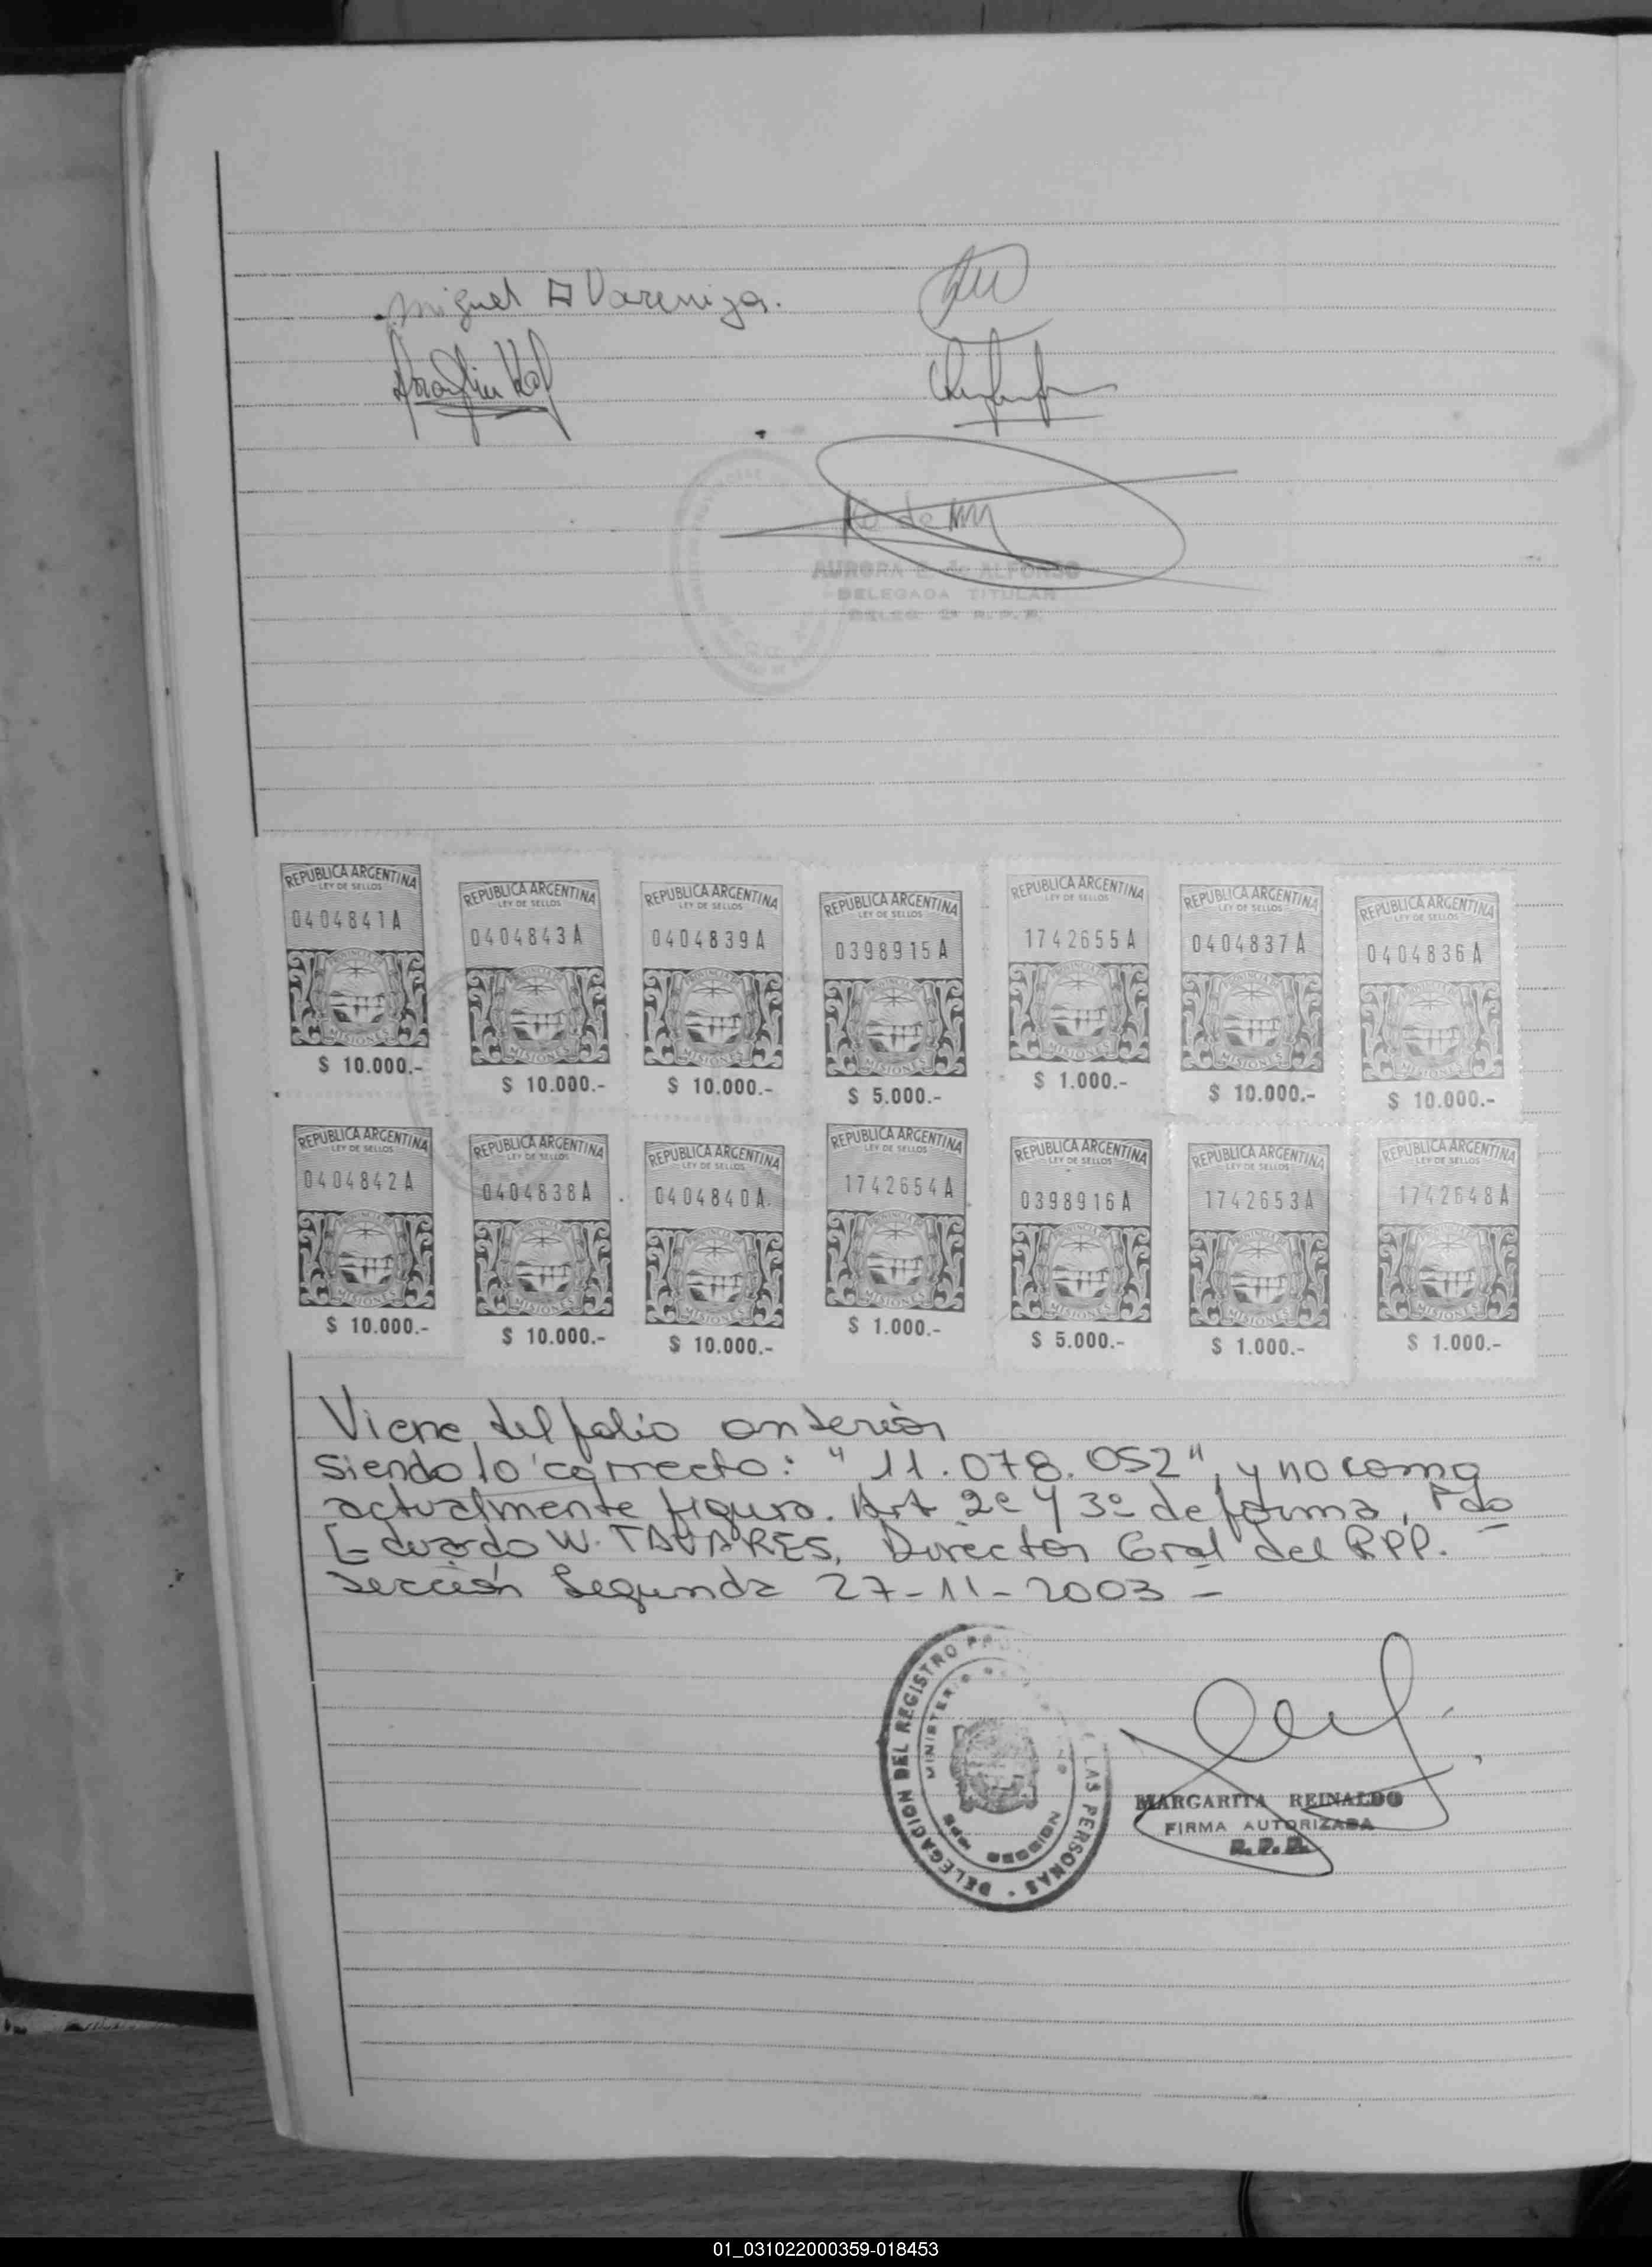 Miguel A Vareniza.
AURORA E. de ALFONSO
DELEGADA TITULAR
DELEG. 2ª R. P. P.
REPUBLICA ARGENTINA
LEY DE SELLOS
0404841A
PROVINCIA DE
MISIONES
$ 10.000.-
REPUBLICA ARGENTINA
LEY DE SELLOS
0404843A
PROVINCIA DE
MISIONES
$ 10.000.-
REPUBLICA ARGENTINA
LEY DE SELLOS
0404839A
PROVINCIA DE
MISIONES
$ 10.000.-
REPUBLICA ARGENTINA
LEY DE SELLOS
0398915A
PROVINCIA DE
MISIONES
$ 5.000.-
REPUBLICA ARGENTINA
LEY DE SELLOS
1742655A
PROVINCIA DE
MISIONES
$ 1.000.-
REPUBLICA ARGENTINA
LEY DE SELLOS
0404837A
PROVINCIA DE
MISIONES
$ 10.000.-
REPUBLICA ARGENTINA
LEY DE SELLOS
0404836A
PROVINCIA DE
MISIONES
$ 10.000.-
REPUBLICA ARGENTINA
LEY DE SELLOS
0404842A
PROVINCIA DE
MISIONES
$ 10.000.-
REPUBLICA ARGENTINA
LEY DE SELLOS
0404838A
PROVINCIA DE
MISIONES
$ 10.000.-
REPUBLICA ARGENTINA
LEY DE SELLOS
0404840A
PROVINCIA DE
MISIONES
$ 10.000.-
REPUBLICA ARGENTINA
LEY DE SELLOS
1742654A
PROVINCIA DE
MISIONES
$ 1.000.-
REPUBLICA ARGENTINA
LEY DE SELLOS
0398916A
PROVINCIA DE
MISIONES
$ 5.000.-
REPUBLICA ARGENTINA
LEY DE SELLOS
1742653A
PROVINCIA DE
MISIONES
$ 1.000.-
REPUBLICA ARGENTINA
LEY DE SELLOS
1742648A
PROVINCIA DE
MISIONES
$ 1.000.-
Viene del folio anterior
siendo lo correcto: "11.078.052", y no como
actualmente figura. Art 2º y 3º de forma, Fdo
Eduardo W. TAVARES, Director Gral del RPP.
Sección Segunda 27-11-2003 -
DELEGACION DEL REGISTRO LAS PERSONAS
MARGARITA REINALDO
FIRMA AUTORIZADA
R.P.P.
01_031022000359-018453